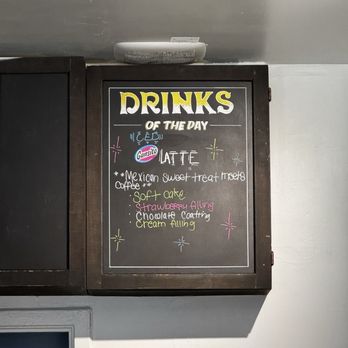 DRINKS
OF THE DAY
"ICED"
Gansito
LATTE
**Mexican sweet treat meets
coffee**
· Soft cake
· Strawberry filling
· Chocolate Coating
· Cream filling